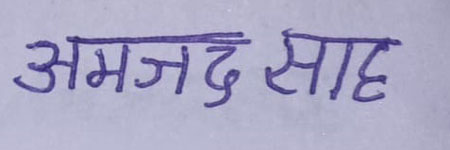 अमजद साह